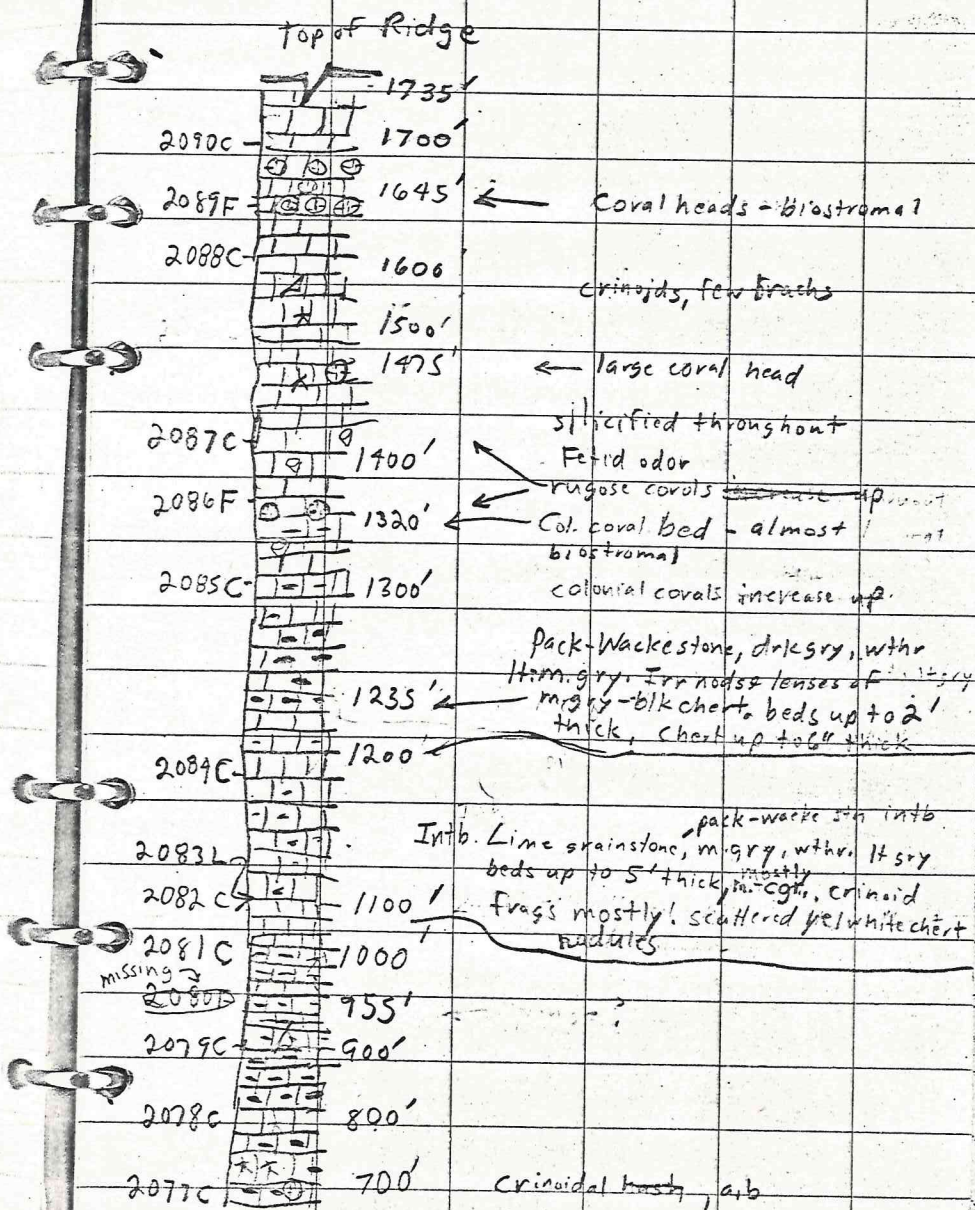 Top of Ridge
1735'
2090C 1700'
2089F 1645' Coral heads - biostromal
2088C 1600
crinoids, few brachs
1500'
1475' large coral head
silicified throughout
2087C
1400' Fetid odor
2086F rugose corals increase up
1320' Col. coral bed - almost
biostromal
2085C 1300' colonial corals increase up.
Pack-Wackestone, drk gry, wthr
lt-m.gry. Irr nods & lenses of
1235' m.gry-blk chert. beds up to 2'
thick, chert up to 6" thick
1200'
2084C
pack-wacke stn intb
Intb. Lime grainstone, m.gry, wthr. lt gry
2083L beds up to 5' thick, mostly m.-cgr., crinoid
2082C 1100' frags mostly. scattered yel white chert
nodules
2081C 1000'
missing
2080D 955' ?
2079C 900'
2078C 800'
2077C 700' Crinoidal hash, a,b